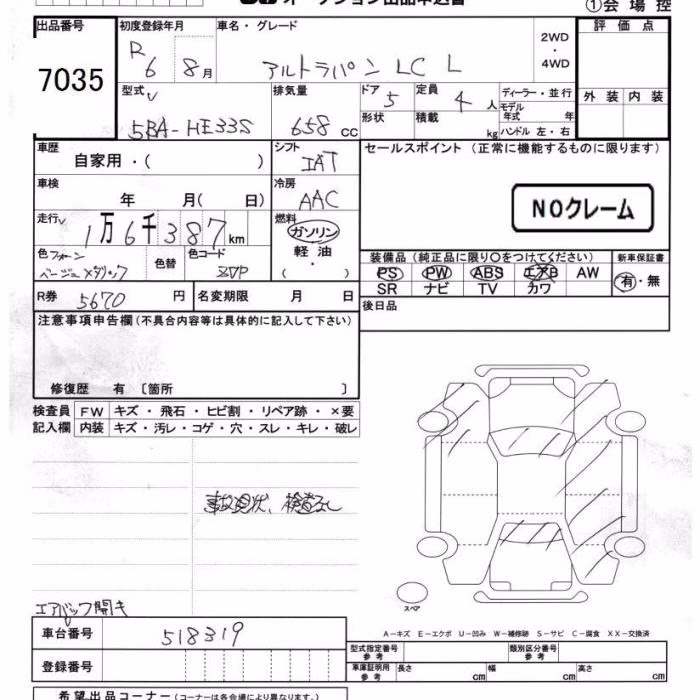 オークション出品申込書 ①会場控
出品番号 初度登録年月 車名・グレード 評価点
7035 R6 8月 アルトラパン LC L 2WD・4WD
型式 排気量 ドア 定員 ディーラー・並行 外装 内装
5BA-HE33S 658cc 5 4人 モデル年式 年
形状 積載 kg ハンドル 左・右
車歴 シフト セールスポイント (正常に機能するものに限ります)
自家用・( ) IAT
車検 冷房
年 月( 日) AAC NOクレーム
走行 燃料
1万6千387km ガソリン
軽油
・( )
色 フォーン 色替 色コード 装備品 (純正品に限り○をつけてください) 新車保証書
ベージュメタリック ZVP PS PW ABS エアB AW 有・無
SR ナビ TV カワ
R券 5670円 名変期限 月 日 後日品
注意事項申告欄 (不具合内容等は具体的に記入して下さい)
修復歴 有 〔箇所 〕
検査員 FW キズ・飛石・ヒビ割・リペア跡・×要
記入欄 内装 キズ・汚レ・コゲ・穴・スレ・キレ・破レ
事故現状、検査なし
スペア
エアバック開き
A-キズ E-エクボ U-凹み W-補修跡 S-サビ C-腐食 XX-交換済
車台番号 518319
型式指定番号 参考 類別区分番号 参考
登録番号 車庫証明用 参考 長さ cm 幅 cm 高さ cm
希望出品コーナー (コーナーは各会場により異なります。)